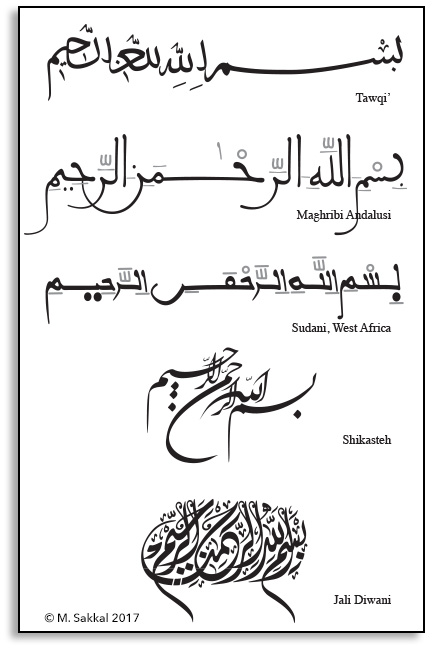 بسم الله الرحمن الرحيم
Tawqi’
بِسْمِ اللَّهِ الرَّحْمَنِ الرَّحِيمِ
Maghribi Andalusi
بِسْمِ اللَّهِ الرَّحْمَنِ الرَّحِيمِ
Sudani, West Africa
بسم الله الرحمن الرحيم
Shikasteh
بسم الله الرحمن الرحيم
Jali Diwani
© M. Sakkal 2017